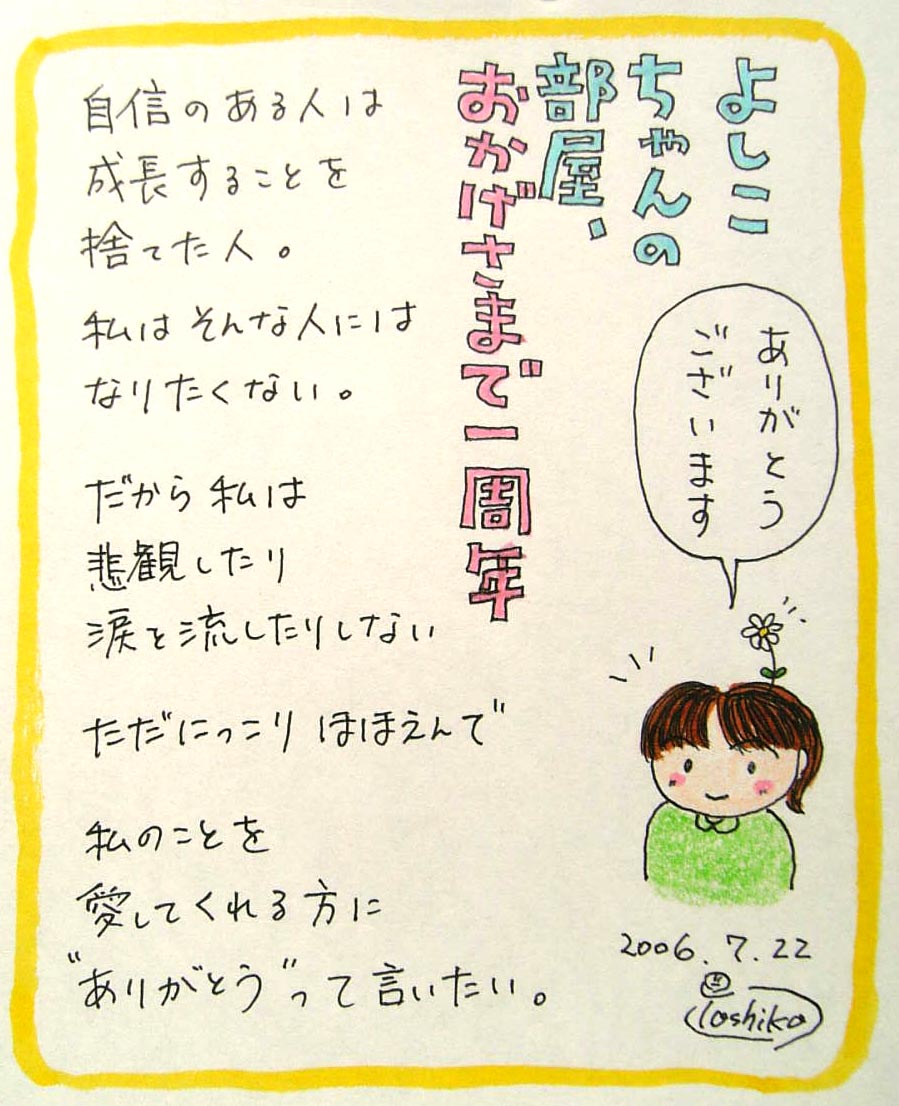 よしこ
ちゃんの
部屋、
おかげさまで一周年
ありがとう
ございます
自信のある人は
成長することを
捨てた人。
私はそんな人には
なりたくない。
だから私は
悲観したり
涙を流したりしない
ただにっこりほほえんで
私のことを
愛してくれる方に
"ありがとう"って言いたい。
2006.7.22
Yoshiko